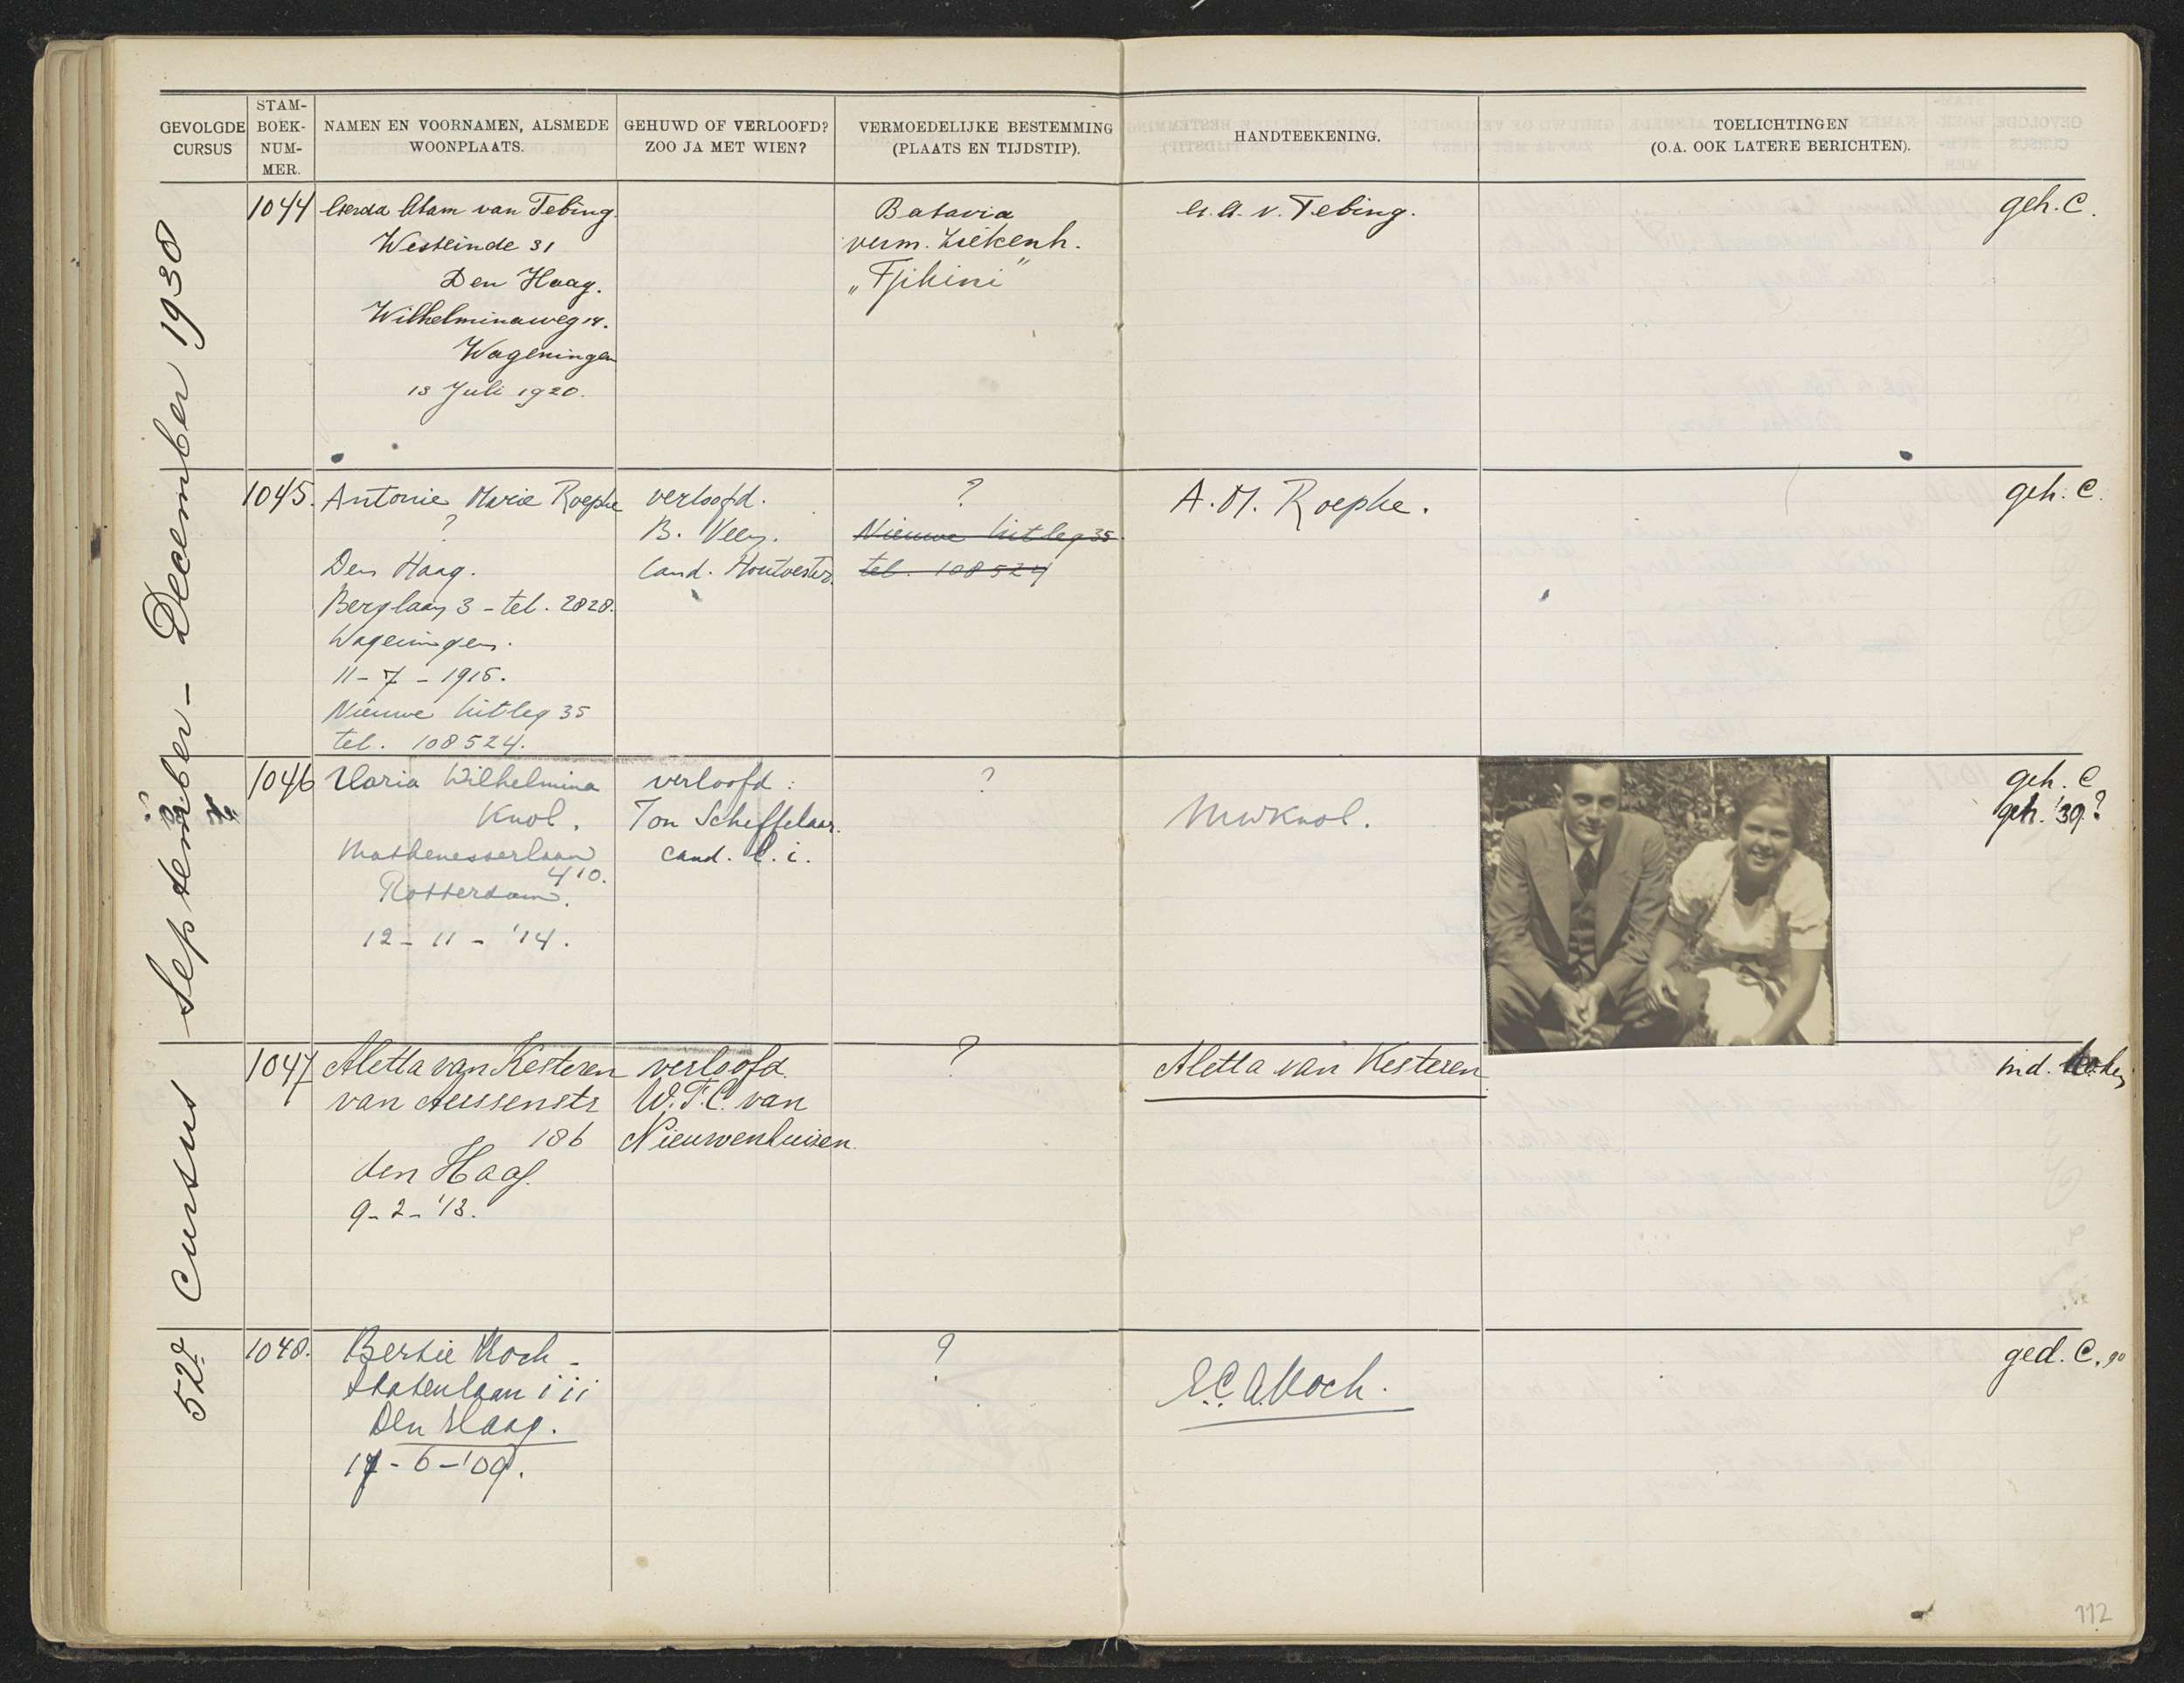 GEVOLGDE CURSUS
STAM-BOEK-NUM-MER.
NAMEN EN VOORNAMEN, ALSMEDE WOONPLAATS.
GEHUWD OF VERLOOFD? ZOO JA MET WIEN?
VERMOEDELIJKE BESTEMMING (PLAATS EN TIJDSTIP).
HANDTEEKENING.
TOELICHTINGEN (O.A. OOK LATERE BERICHTEN).
52e Cursus September - December 1938
1044
Gerda Adam van Tebing.
Westeinde 31
Den Haag.
Wilhelminaweg 14.
Wageningen
13 Juli 1920.
Batavia
verm. Ziekenh.
„Tjikini"
G.A. v. Tebing.
geh. C.
1045.
Antonie Marie Roepke
?
Den Haag.
Berglaan 3 - tel. 2828.
Wageningen.
11 - 7 - 1915.
Nieuwe Uitleg 35
tel. 108524.
verloofd.
B. Veen.
Cand. Houtvester.
?
Nieuwe Uitleg 35
tel. 108524
A. M. Roepke.
geh. C.
1046
Maria Wilhelmina
Knol.
Mathenesserlaan
410.
Rotterdam.
12 - 11 - '14.
verloofd:
Ton Scheffelaar.
cand. c. i.
?
MWKnol.
geh. C
geh. '39?
1047
Aletta van Kesteren
van Aerssenstr
186
den Haag.
9-2-'13.
verloofd
W.F.C. van
Nieuwenhuizen.
?
Aletta van Kesteren
ind.
1048.
Bertie Koch -
Statenlaan iii
Den Haag.
17 - 6 - '09.
?
E.C.A. Koch.
ged. C.
112